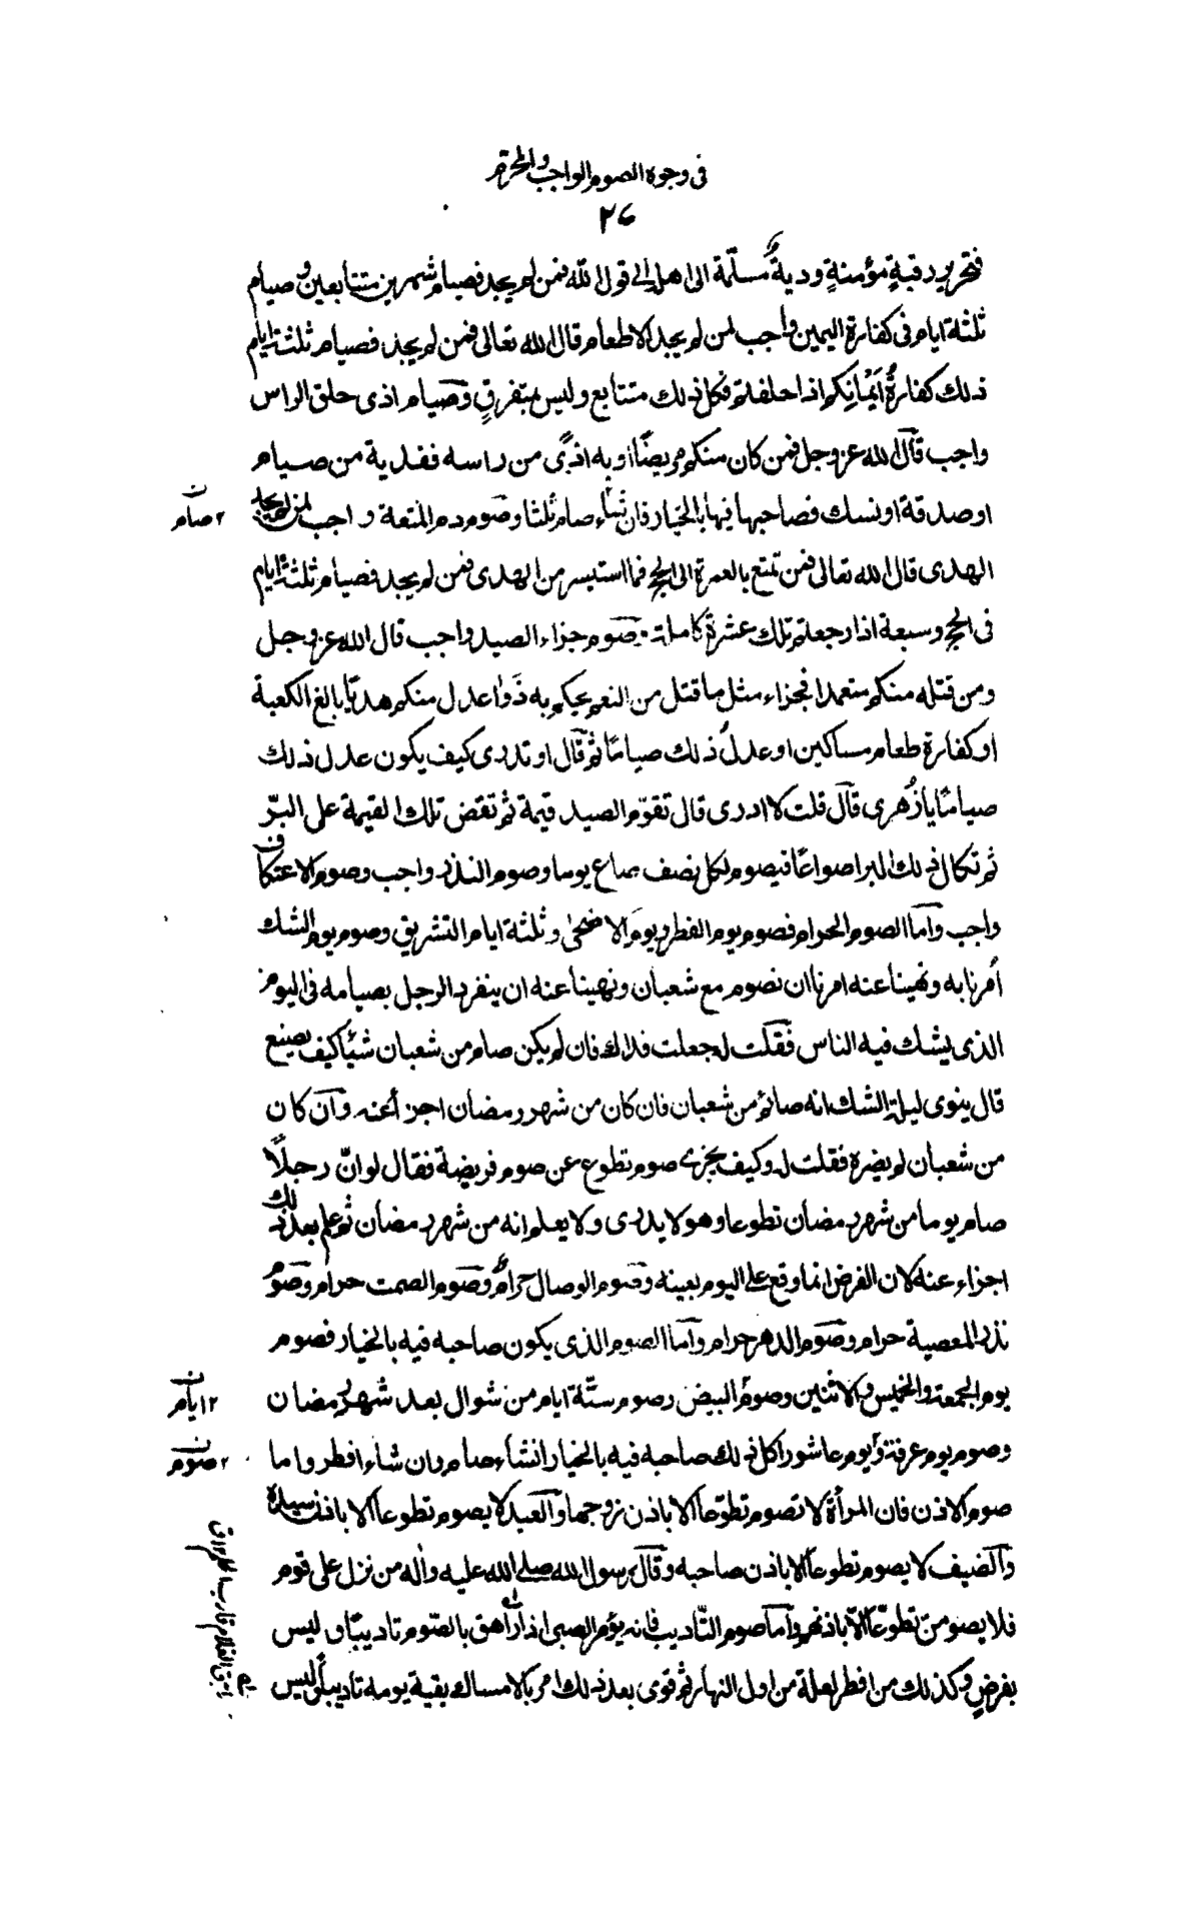 فى وجوه الصوم الواجب والمحرم
٢٦
فتحرير رقبةٍ مؤمنةٍ وديةٌ مسلّمة الى اهله الى قول الله فمن لم يجد فصيام شهرين متتابعين وصيام
ثلثة ايام فى كفارة اليمين واجب لمن لم يجد الاطعام قال الله تعالى فمن لم يجد فصيام ثلثة ايام
ذلك كفارةُ اَيْمٰانِكم اذا حلفتم فكل ذلك متتابع وليس بمتفرقٍ وصيام اذى حلق الراس
واجب قال الله عز وجل فمن كان منكم مريضًا او به اذًى من راسه ففدية من صيام
او صدقة او نسك فصاحبها فيها بالخيار فان شاء صام ثلثا وصوم دم المتعة واجب لمن لم يجد
الهدى قال الله تعالى فمن تمتع بالعمرة الى الحج فما استيسر من الهدى فمن لم يجد فصيام ثلثة ايام
فى الحج وسبعة اذا رجعتم تلك عشرة كاملة وصوم جزاء الصيد واجب قال الله عز وجل
ومن قتله منكم متعمدا فجزاء مثل ما قتل من النعم يحكم به ذَوٰا عدل منكم هديًا بالغ الكعبة
او كفارة طعام مساكين او عدلُ ذلك صيامًا ثم قال او تدرى كيف يكون عدل ذلك
صيامًا يا زُهرى قال قلت لا ادرى قال تقوّم الصيد قيمة ثم تفض تلك القيمة على البرّ
ثم تكال ذلك البر اصواعًا فيصوم لكل نصف صاع يوما وصوم النذر واجب وصوم الاعتكاف
واجب واما الصوم الحرام فصوم يوم الفطر ويوم الاضحىٰ وثلثة ايام التشريق وصوم يوم الشك
اُمرنا به ونهينا عنه امرنا ان نصوم مع شعبان ونهينا عنه ان ينفرد الرجل بصيامه فى اليوم
الذى يشك فيه الناس فقلت له جعلت فداك فان لم يكن صام من شعبان شيئًا كيف يصنع
قال ينوى ليلة الشك انه صائم من شعبان فان كان من شهر رمضان اجزأ عنه وان كان
من شعبان لم يضره فقلت له وكيف يجزى صوم تطوع عن صوم فريضة فقال لو انّ رجلًا
صام يوما من شهر رمضان تطوعا وهو لا يدرى ولا يعلم انه من شهر رمضان ثم علم بعد ذلك
اجزاء عنه لان الفرض انما وقع على اليوم بعينه وصوم الوصال حرامٌ وصوم الصمت حرام وصومُ
نذر المعصية حرام وصوم الدهر حرام واما الصوم الذى يكون صاحبه فيه بالخيار فصوم
يوم الجمعة والخميس والاثنين وصوم البيض وصوم ستّة ايام من شوال بعد شهر رمضان
وصوم يوم عرفة ويوم عاشورا كل ذلك صاحبه فيه بالخيار انشاء صام وان شاء افطر واما
صوم الاذن فان المرأة لا تصوم تطوّعا الا باذن زوجها والعبد لا يصوم تطوعا الا باذن سيده
والضيف لا يصوم تطوعا الا باذن صاحبه وقال رسول الله صلى الله عليه واله من نزل على قوم
فلا يصومنّ تطوّعًا الّا باذنهم واما صوم التّاديب فانه يؤمر الصبى اذا راهق بالصّوم تاديبًا وليس
بفرضٍ وكذلك من افطر لعلة من اول النهار ثم قوى بعد ذلك امر بالامساك بقية يومه تاديبًا وليس
٢ صام ن
٢ ايام ن
٢ صوم ن